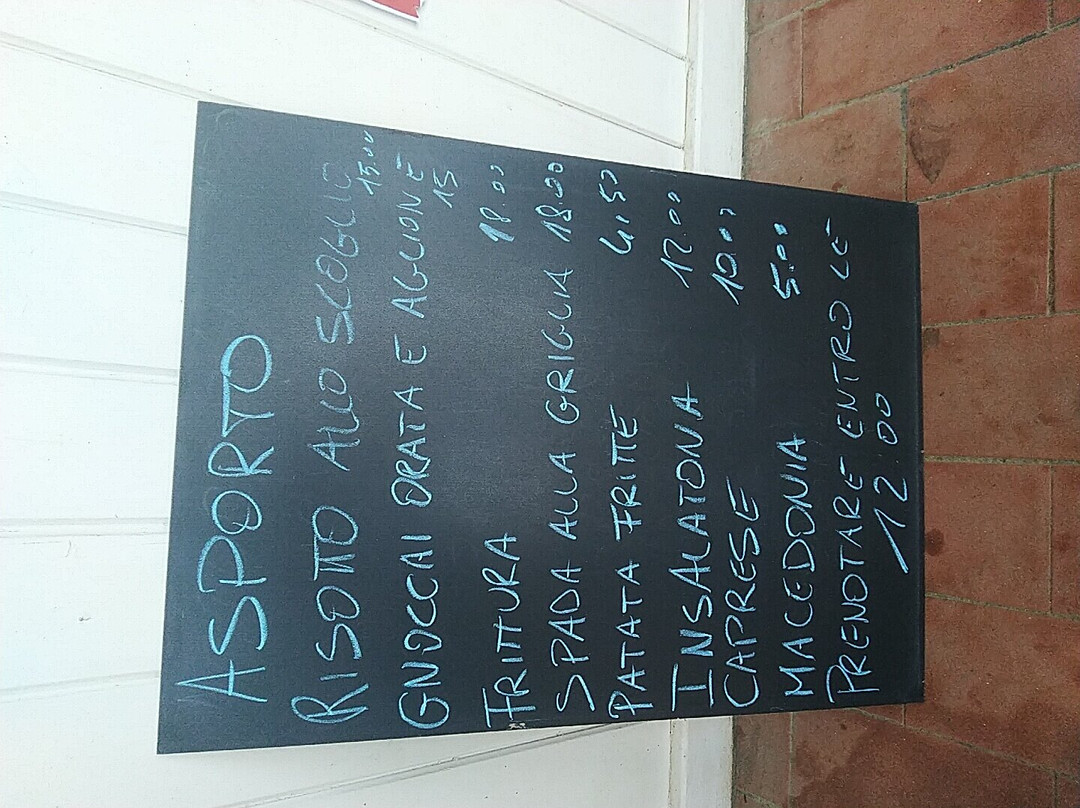 ASPORTO
RISOTTO ALLO SCOGLIO
15.00
GNOCCAI ORATA E AGLIONE
15
FRITTURA 18.00
SPADA ALLA GRIGLIA 18.00
PATATA FRITTE 4,50
INSALATONA 12.00
CAPRESE 10.00
MACEDONIA 5.00
PRENOTARE ENTRO LE
12.00